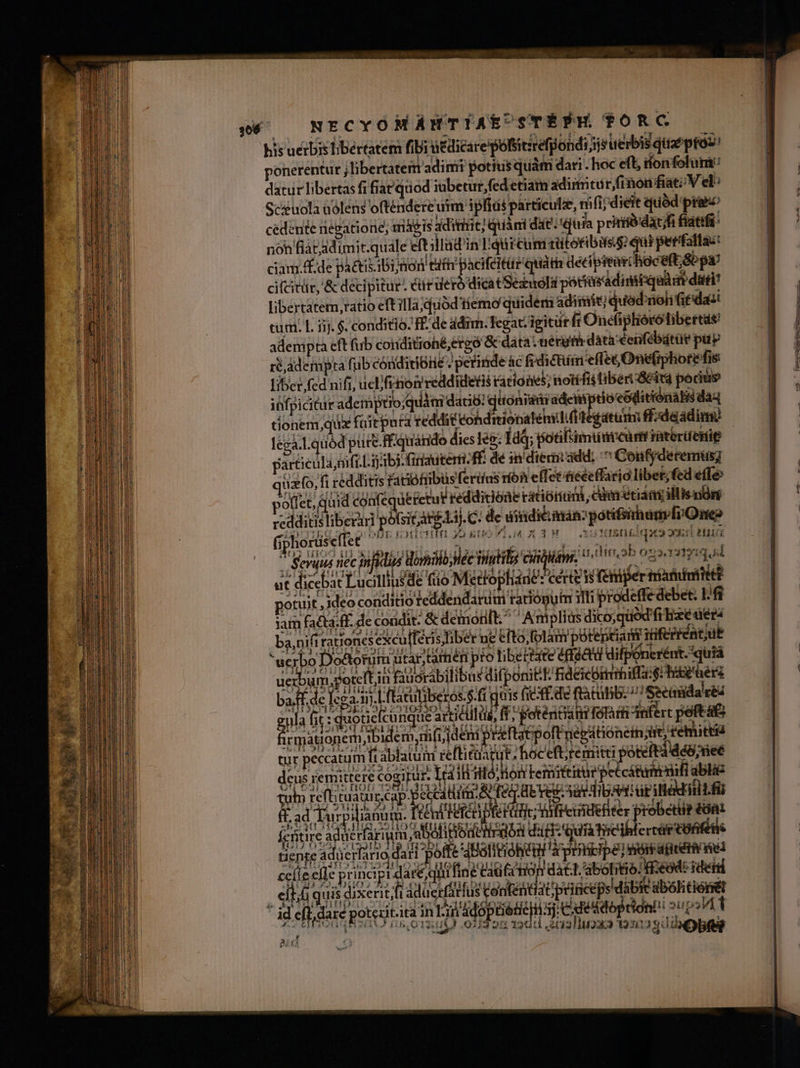 306 NECYOMANTIAE STEPH. FORC.
his uerbis libertatem sibi uēdicare possit: respōndi, ijs uerbis quæ propo
ponerentur, libertatem adimi potius quàm dari. hoc est, non solum
datur libertas si fiat quod iubetur, sed etiam adimitur, si non fiat. Vel
Scæuola uolens ostendere uim ipsius particulæ, nisi, dicit quòd præ
cedente negatione, magis adimit, quàm dat. quia primò dat, si fiat: si
non fiat, adimit. quale est illud in l. qui cum tutoribus. §. qui per falla
ciam. ff. de pactis. ibi, non tam paciscitur quàm decipitur. hoc est, & pa
ciscitur, & decipitur. cur uerò dicat Scæuola potius adimi quàm dari
libertatem, ratio est illa, quòd nemo quidem adimit, quod non sit da
tum. l. iij. §. conditio. ff. de adim. legat. igitur si Onesiphoro libertas
adempta est sub conditione, ergo & data. uerùm data censebatur pu
rè, adempta sub conditione. perinde ac si dictum esset, Onesiphore sis
liber, sed nisi, uel, si non reddideris rationes, non sis liber. & ita potius
inspicitur ademptio, quàm datio: quoniam ademptio cōditionalis da
tionem, quæ fuit pura reddit conditionalem. l. si legatum. ff. de adim.
lega. l. quòd purè. ff. quando dies leg. Idq; potissimùm cùm interuenit
particula, nisi. l. ij. ibi. finiautem. ff. de in diem add. Consyderemus
quæso, si redditis rationibus seruus non esset necessario liber, sed esse
posset, quid consequeretur redditione rationum, cùm etiam illis non
redditis liberari possit, arg. l. ij. C. de uindic.
siphorus esset
Seruus nec infidus domino, nec inutilis cuiquam,
ut dicebat Lucillius de suo Metrophane: certè is semper manumitti
potuit, ideo conditio reddendarum rationum illi prodesse debet. l. si
iam facta. ff. de condit. & demonst. Amplius dico, quòd si hæc uer
ba, nisi rationes excusseris, liber ne esto, solam potentiam inferrent, ut
uerbo Doctorum utar, tamen pro libertate effectū disponerent. quia
uerbum, potest, in fauorabilibus disponit. l. fideicommissa. §. hæc uer
ba. ff. de lega. iij. l. statuliberos. §. si quis sic. ff. de statulib. Secunda re
gula sit: quotiescunque articulus, ff, potentiam solam infert post af
firmationem, ibidem, nisi, idem præstat post negationem, ut, remitti
tur peccatum si ablatum restituatur. hoc est, remitti potest à deo, nec
deus remittere cogitur. Ita in illo, non remittitur peccatum nisi abla
tum restituatur. cap. peccatum.
ff. ad Turpilianum.
sentire aduersarium, abolitionem non dari: quia hic
tiente aduersario dari posse abolitionem à principe, non autem ne
cesse esse principi dare, qui sine causa non dat. l. abolitio. ff. eod. idem
est, si quis dixerit, si aduersarius consentiat princeps dabit abolitionē
id est, dare poterit. ita in l. in adoptionem. ij. C. de adoption.